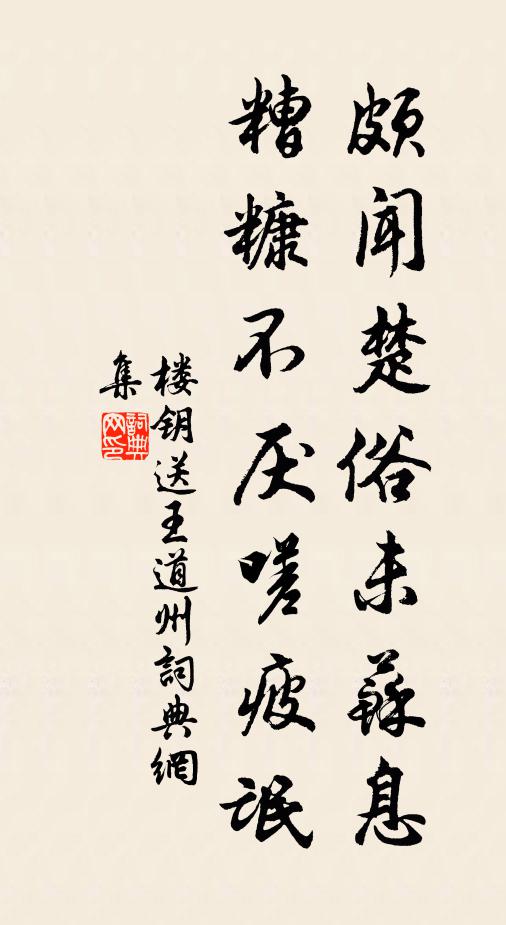 颇闻楚俗未苏息
糟糠不厌嗟疲氓
楼钥送王道州詞典網
集
詞典
网印